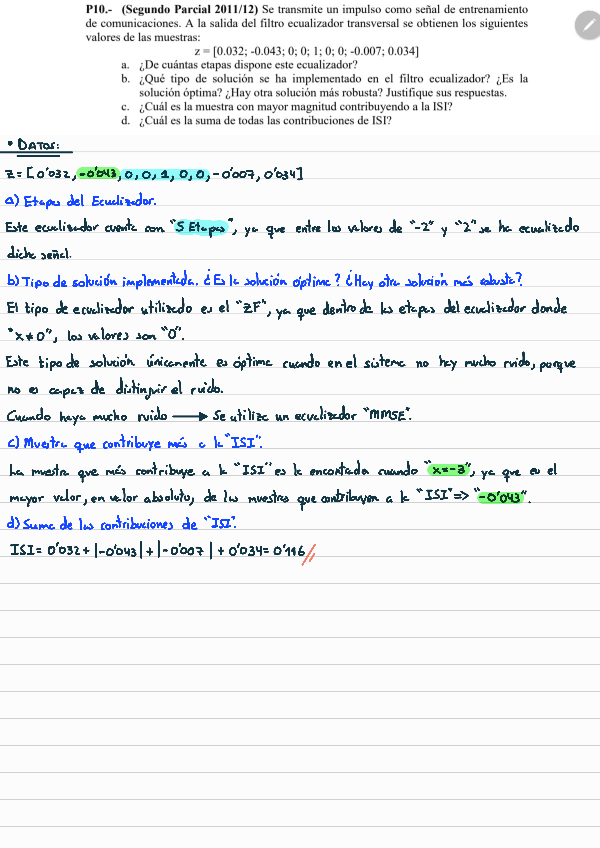 P10.- (Segundo Parcial 2011/12) Se transmite un impulso como señal de entrenamiento
de comunicaciones. A la salida del filtro ecualizador transversal se obtienen los siguientes
valores de las muestras:
z = [0.032; -0.043; 0; 0; 1; 0; 0; -0.007; 0.034]
a. ¿De cuántas etapas dispone este ecualizador?
b. ¿Qué tipo de solución se ha implementado en el filtro ecualizador? ¿Es la
solución óptima? ¿Hay otra solución más robusta? Justifique sus respuestas.
c. ¿Cuál es la muestra con mayor magnitud contribuyendo a la ISI?
d. ¿Cuál es la suma de todas las contribuciones de ISI?
• DATOS:
z = [0'032, -0'043, 0, 0, 1, 0, 0, -0'007, 0'034]
a) Etapas del Ecualizador.
Este ecualizador cuenta con "5 Etapas", ya que entre los valores de "-2" y "2" se ha ecualizado
dicha señal.
b) Tipo de solución implementada. ¿Es la solución óptima? ¿Hay otra solución más robusta?
El tipo de ecualizador utilizado es el "ZF", ya que dentro de las etapas del ecualizador donde
"x≠0", los valores son "0".
Este tipo de solución únicamente es óptima cuando en el sistema no hay mucho ruido, porque
no es capaz de distinguir el ruido.
Cuando haya mucho ruido → Se utiliza un ecualizador "MMSE".
c) Muestra que contribuye más a la "ISI".
La muestra que más contribuye a la "ISI" es la encontrada cuando "x=-3", ya que es el
mayor valor, en valor absoluto, de las muestras que contribuyen a la "ISI" => "-0'043".
d) Suma de las contribuciones de "ISI".
ISI= 0'032+|-0'043|+|-0'007|+0'034= 0'116//